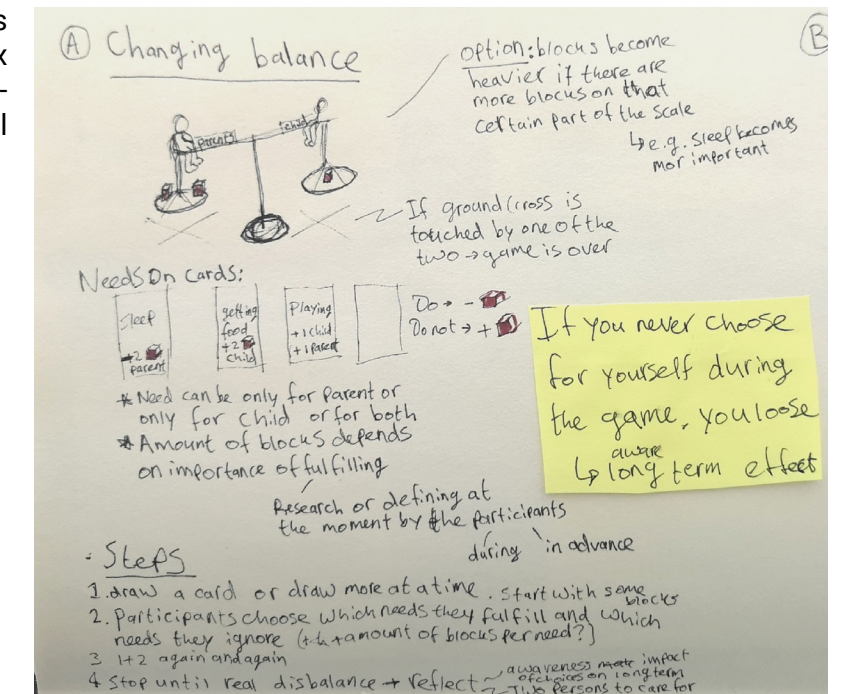 s
x
-
l
A Changing balance
B
option: blocks become
heavier if there are
more blocks on that
certain part of the scale
↳ e.g. sleep becomes
mor important
parents
child
If ground/cross is
touched by one of the
two → game is over
Needs on cards:
Sleep
+2
parent
getting
food
+2
child
Playing
+1 child
+1 parent
Do → -
Do not → +
If you never choose
for yourself during
the game, you loose
aware
↳ long term effect
* Need can be only for parent or
only for child or for both
* Amount of blocks depends
on importance of fulfilling
Research or defining at
the moment by the participants
during in advance
- Steps
1. draw a card or draw more at a time. Start with some
blocks
2. Participants choose which needs they fulfill and which
needs they ignore (+ amount of blocks per need?)
3 1+2 again and again
4 Stop until real disbalance → reflect
awareness impact
of choices on long term
Two persons to care for